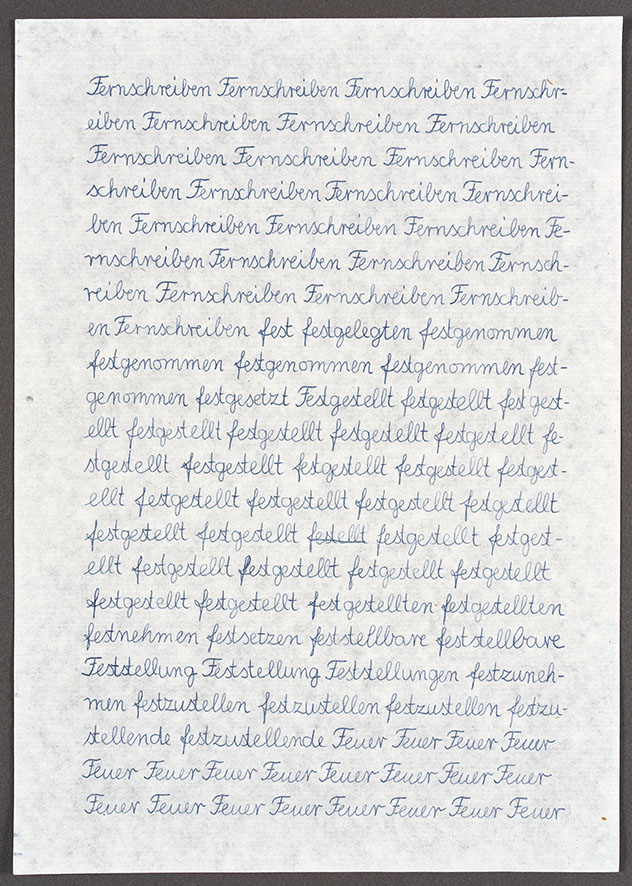 Fernschreiben Fernschreiben Fernschreiben Fernschr-
eiben Fernschreiben Fernschreiben Fernschreiben
Fernschreiben Fernschreiben Fernschreiben Fern-
schreiben Fernschreiben Fernschreiben Fernschrei-
ben Fernschreiben Fernschreiben Fernschreiben Fe-
rnschreiben Fernschreiben Fernschreiben Fernsch-
reiben Fernschreiben Fernschreiben Fernschreib-
en Fernschreiben fest festgelegten festgenommen
festgenommen festgenommen festgenommen fest-
genommen festgesetzt Festgestellt festgestellt festgest-
ellt festgestellt festgestellt festgestellt festgestellt fe-
stgestellt festgestellt festgestellt festgestellt festgest-
ellt festgestellt festgestellt festgestellt festgestellt
festgestellt festgestellt festellt festgestellt festgest-
ellt festgestellt festgestellt festgestellt festgestellt
festgestellt festgestellt festgestellten festgestellten
festnehmen festsetzen feststellbare feststellbare
Feststellung Feststellung Feststellungen festzuneh-
men festzustellen festzustellen festzustellen festzu-
stellende festzustellende Feuer Feuer Feuer Feuer
Feuer Feuer Feuer Feuer Feuer Feuer Feuer Feuer
Feuer Feuer Feuer Feuer Feuer Feuer Feuer Feuer